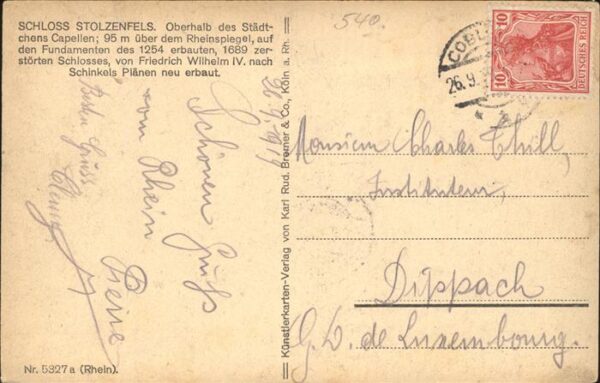 SCHLOSS STOLZENFELS. Oberhalb des Städt-
chens Capellen; 95 m über dem Rheinspiegel, auf
den Fundamenten des 1254 erbauten, 1689 zer-
störten Schlosses, von Friedrich Wilhelm IV. nach
Schinkels Plänen neu erbaut.
540.
COBL
26.9.
10 10
DEUTSCHES REICH
26.9.1919
Schönen Gruß
vom Rhein
Pierre
Besten Gruss
Künstlerkarten-Verlag von Karl Rud. Bremer & Co., Köln a. Rh.
Monsieur Charles Thill,
Instituteur,
Dippach
G. D. de Luxembourg.
Nr. 5327a (Rhein).